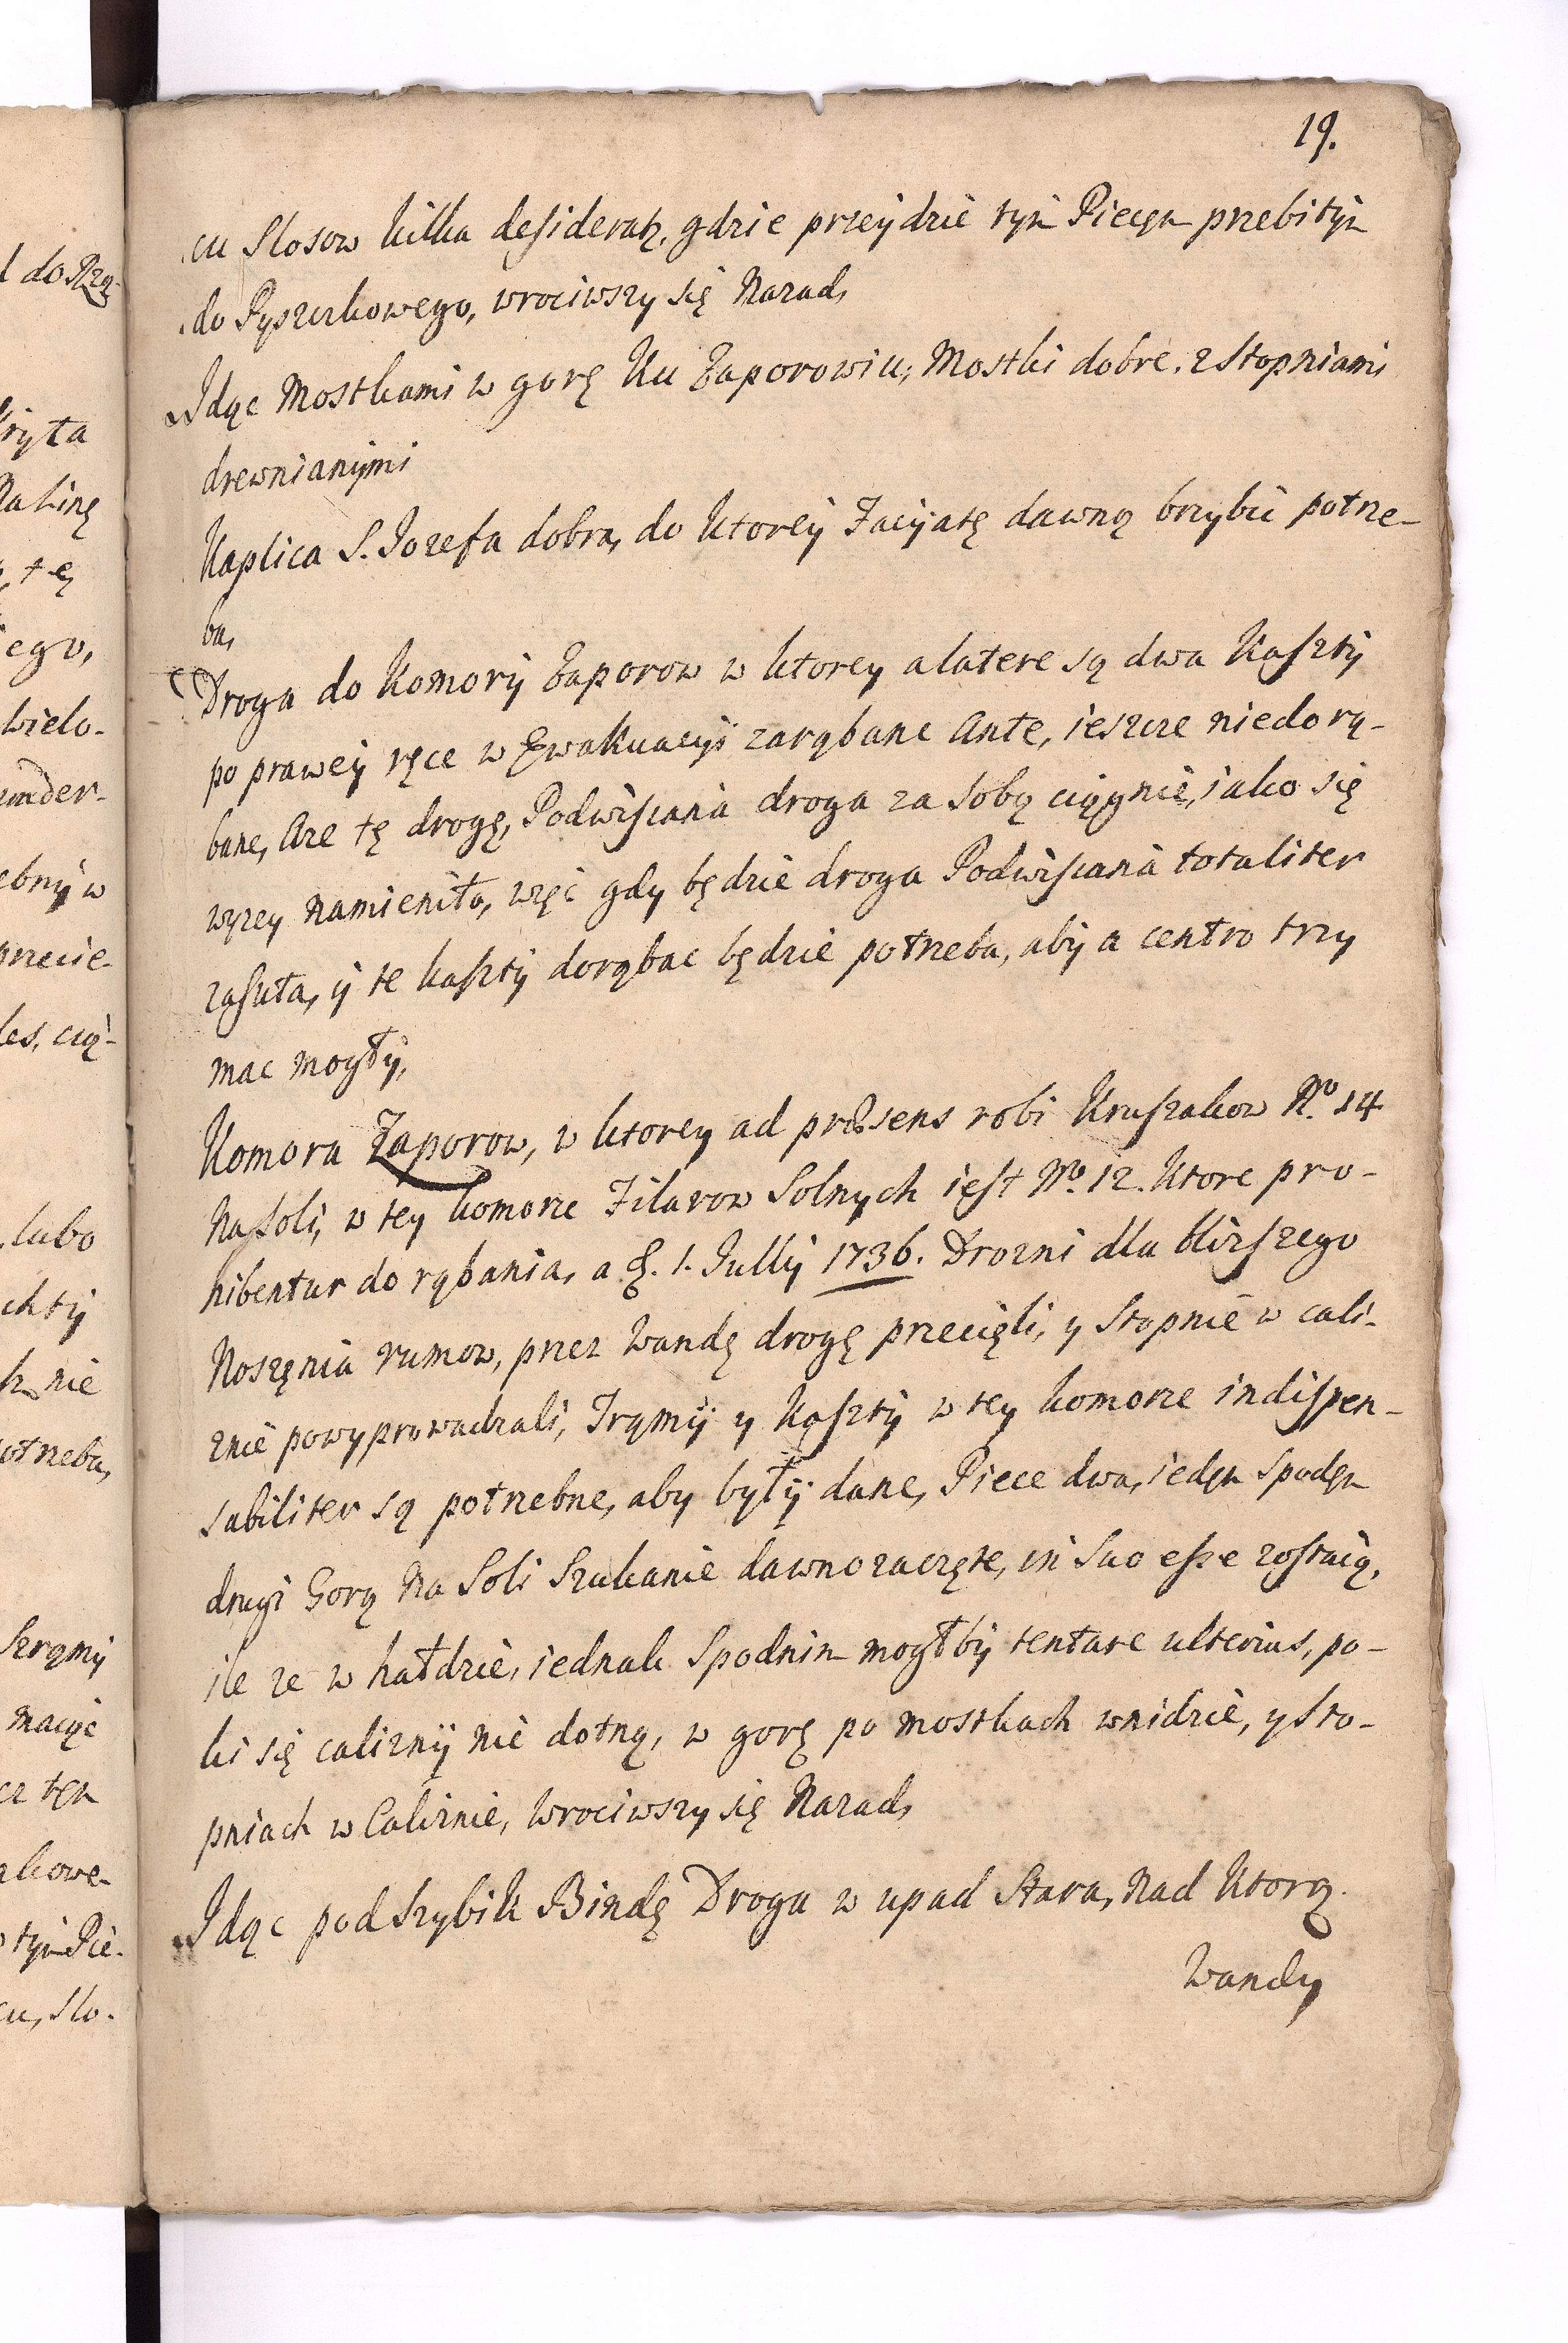 19.
cu Slosow kilka desideratz, gdzie przeÿdzie tyṁ Piecęm przebitÿm
do Pyszczkowego, wrociwszy się Nazad,
Idąc Mostkami w gorę Ku Zaporowiu, Mostki dobre, z Stopniami
drewnianÿmi
Kaplica S. Iozefa dobra, do ktoreÿ Facÿatę dawną brzybić potrze-
ba,
Droga do KomorÿZaporow w ktorey a latere są dwa Kasztÿ
po praweÿ ręce w Ewakuacÿi zarąbane Ante, ieszcze niedorą-
bane, Aze tę drogę, Podwiscania droga za sobą ciągnie, iako się
wyzey Namieniło, więc gdy będzie droga Podwiscania totaliter
zasuta, ÿ te kasztÿ dorąbac będzie potrzeba, abÿ a centro trzy
mac mogłÿ,
Komora Zaporow, w ktorey ad præsens robi Kruszakow No. 14
Na Soli, w tey komorze Filarow Solnych iest No. 12. Ktore pro-
hibentur do rąbania, a d. 1. Iullÿ 1736. Drozni dla bliższego
Noszęnia rumow, przez Wandę drogę przecięli, y Stopnie w cali-
znie powyprowadzali, Trąmÿ y Kasztÿ w tey komorze indispen-
sabiliter są potrzebne, aby bÿłÿ dane, Piece dwa, iedęn Spodęm
drugi Gorą Na Soli Szukanie dawno zaczęte, in Suo esse zostaią,
ile ze w hałdzie, iednak Spodnim mogłbÿ tentare ulterius, po-
ki się caliznÿ nie dotną, w gorę po mostkach wnidzie, y Sto-
pniach w Caliznie, Wrociwszy się Nazad,
Idąc pod Szybik Bindę Droga w upad Stara, Nad Ktorą
Wandy